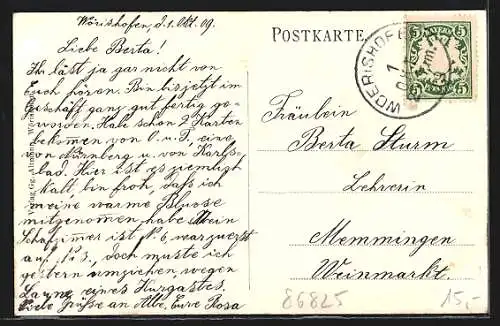 Wörishofen, d. 1. Okt. 09.
Liebe Berta!
Ihr laßt ja gar nicht von
Euch hören. Bin bis jetzt im
Geschäft ganz gut fertig ge-
worden. Habe schon 2 Karten
bekomen von O. u. F., eine
von Nürnberg u. von Karls-
bad. Hier ist es ziemlich
kalt, bin froh, daß ich
meine warme Blouse
mitgenomen habe. Mein
Schafzimmer ist N. 6, war zuerst
auf N. 3, doch musste ich
gestern umziehen, wegen
eines Kurgastes.
Liebe Grüße an Alle. Eure Rosa
Verlag Gg. Wörishofen
POSTKARTE
WOERISHOFEN
1
BAYERN
5 5
5 5
Fräulein
Berta Sturm
Lehrerin
Memmingen
Weinmarkt.
86825
15,-